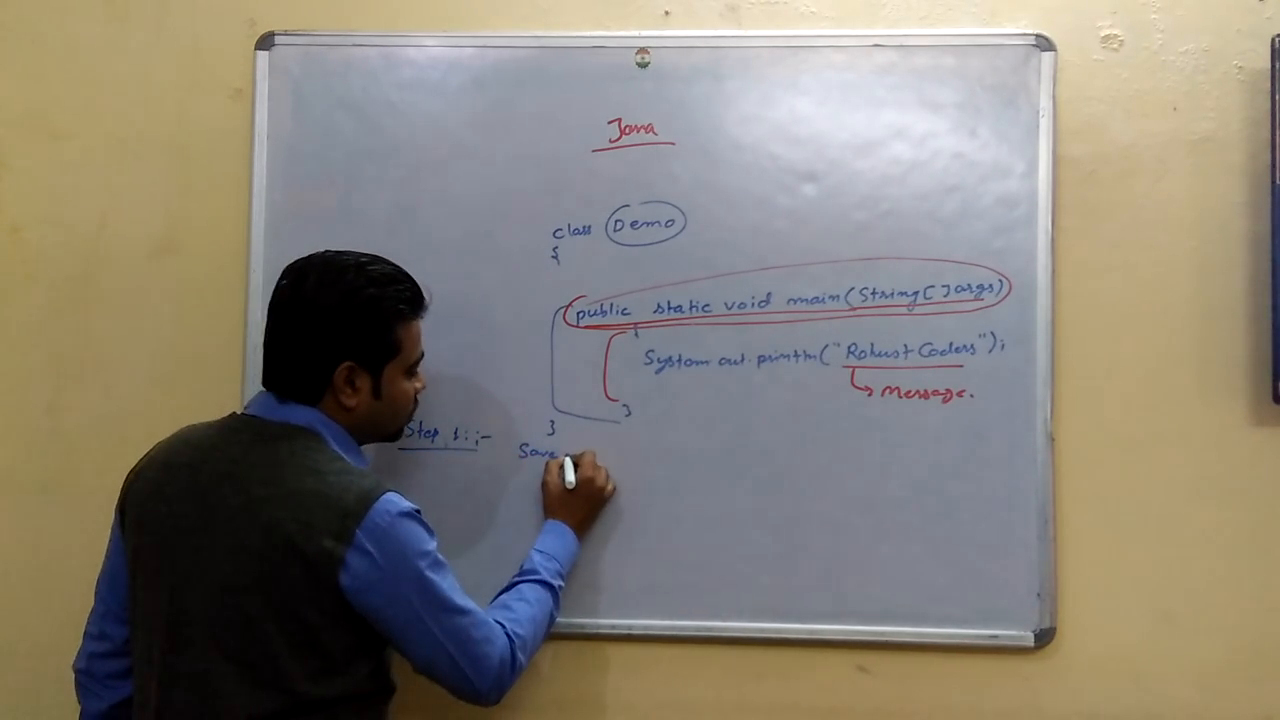 Java
class Demo
{
public static void main(String[]args)
{
System.out.println("Robust Coders");
Message.
}
}
Step 1:-
Save